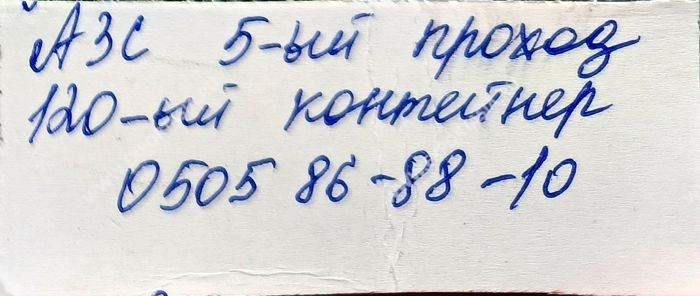 АЗС 5-ый проход
120-ый контейнер
0505 86-88-10